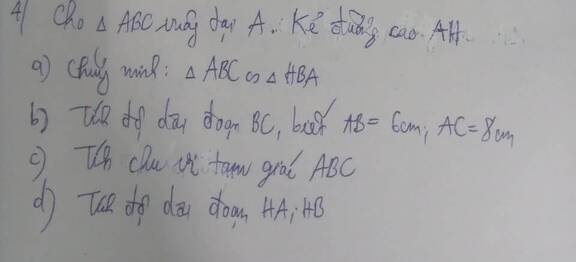 4/ Cho △ ABC vuông tại A. Kẻ đường cao AH
a) Chứng minh: △ ABC ∽ △ HBA
b) Tính độ dài đoạn BC, biết AB = 6cm; AC = 8cm
c) Tính chu vi tam giác ABC
d) Tính độ dài đoạn HA; HB